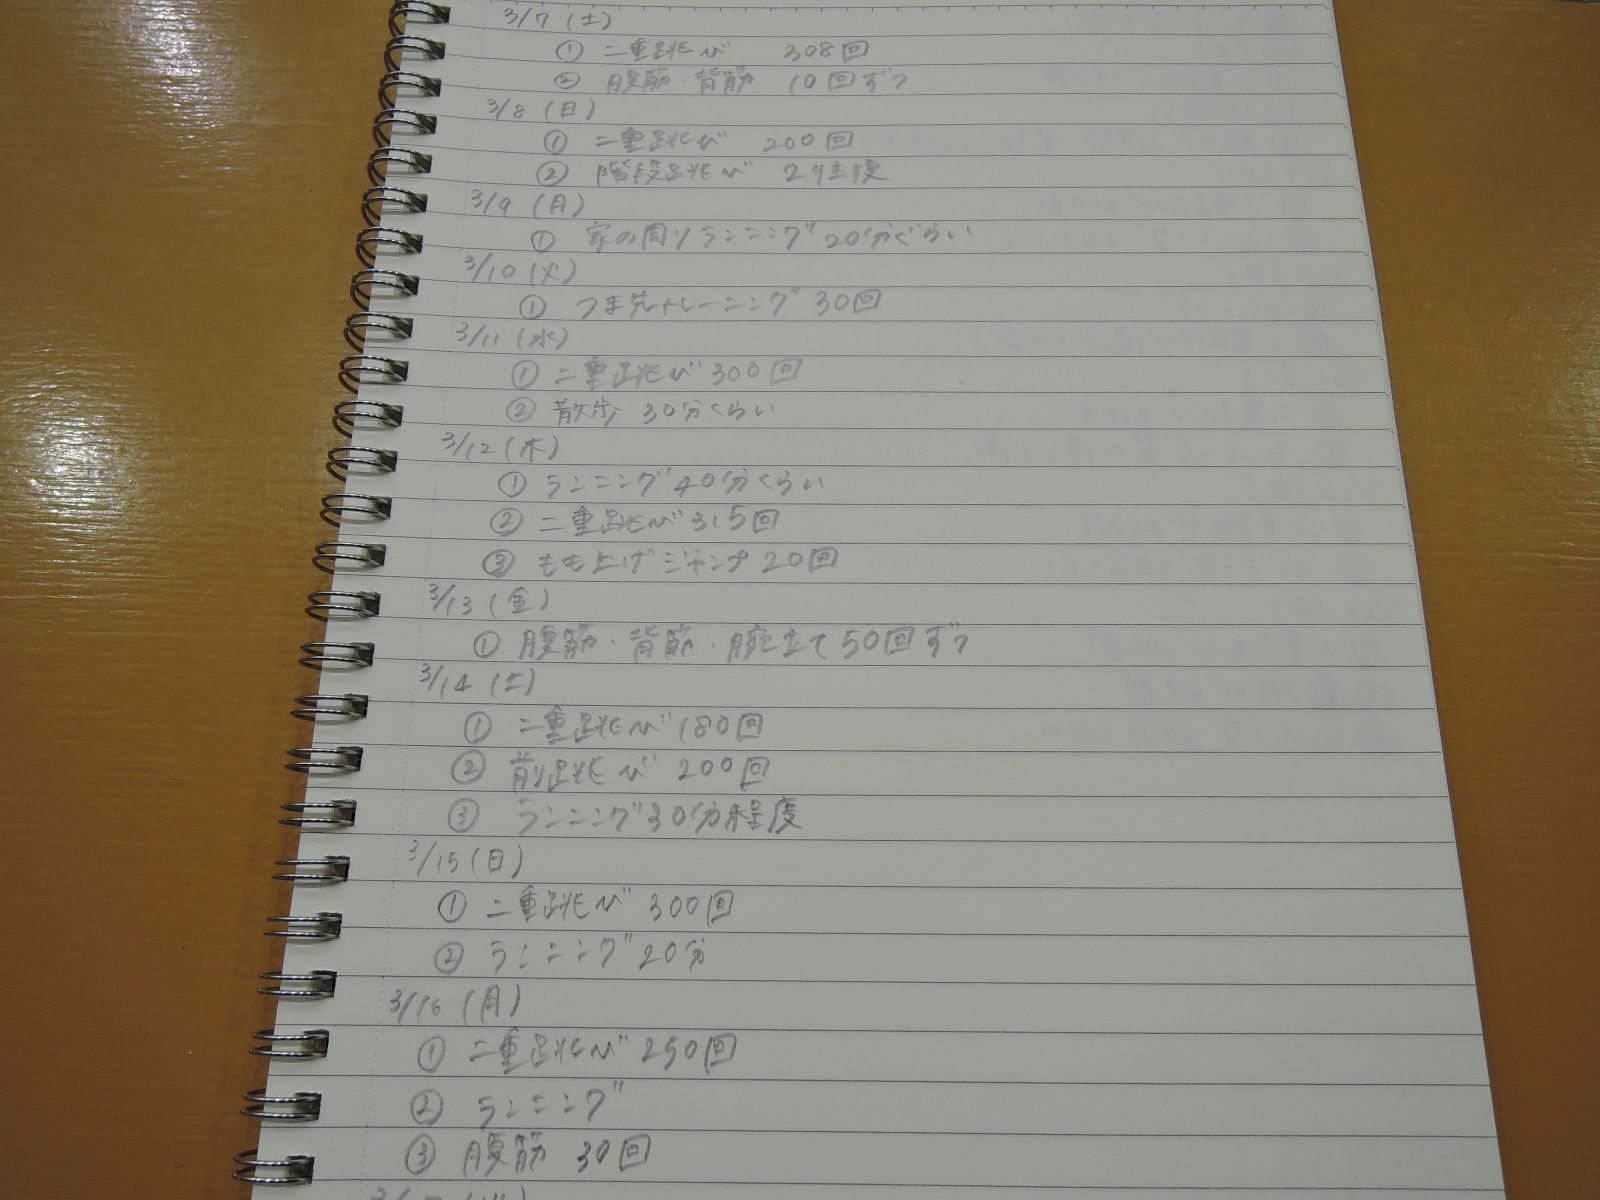 3/7 (土)
① 二重跳び 308回
② 腹筋・背筋 10回ずつ
3/8 (日)
① 二重跳び 200回
② 階段跳び 2往復
3/9 (月)
① 家の周りランニング 20分ぐらい
3/10 (火)
① つま先トレーニング 30回
3/11 (水)
① 二重跳び 300回
② 散歩 30分くらい
3/12 (木)
① ランニング 40分くらい
② 二重跳び 315回
③ もも上げジャンプ 20回
3/13 (金)
① 腹筋・背筋・腕立て 50回ずつ
3/14 (土)
① 二重跳び 180回
② 前跳び 200回
③ ランニング 30分程度
3/15 (日)
① 二重跳び 300回
② ランニング 20分
3/16 (月)
① 二重跳び 250回
② ランニング
③ 腹筋 30回